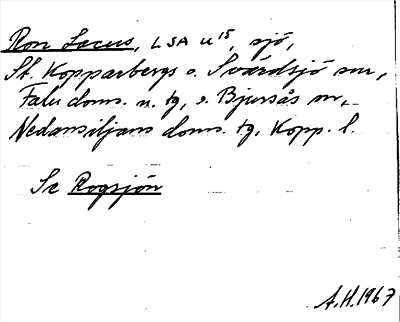 Ron Lacus, LSA u¹⁵, sjö,
St. Kopparbergs o. Svärdsjö snr,
Falu doms. n. tg, s. Bjursås sn,
Nedansiljans doms. tg. Kopp. l.
Se Rogsjön
A.H. 1967